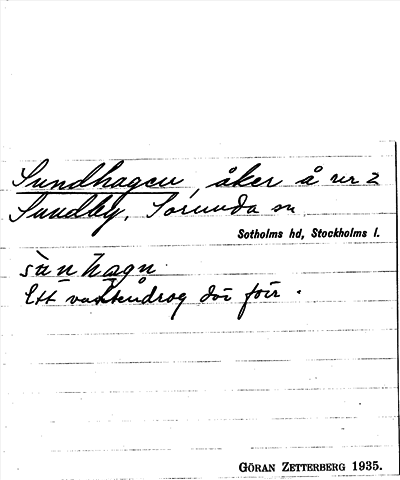 Sundhagen, åker å nr 2
Sundby, Sorunda sn
Sotholms hd, Stockholms l.
sùnhagn
Ett vattendrog där förr.
GÖRAN ZETTERBERG 1935.